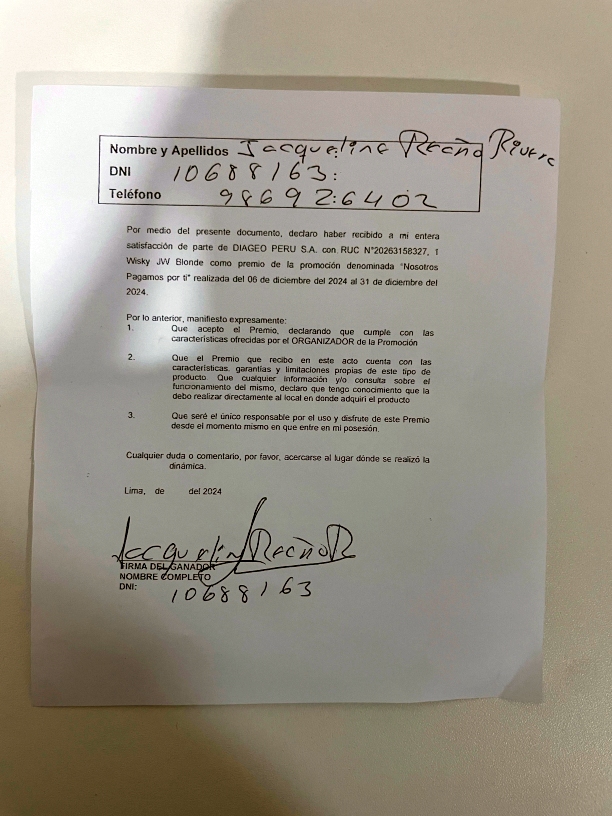 Nombre y Apellidos Jacqueline Reaño Rivera
DNI 10688163:
Teléfono 98692:6402
Por medio del presente documento, declaro haber recibido a mi entera
satisfacción de parte de DIAGEO PERU S.A. con RUC N°20263158327, 1
Wisky JW Blonde como premio de la promoción denominada "Nosotros
Pagamos por ti" realizada del 06 de diciembre del 2024 al 31 de diciembre del
2024.
Por lo anterior, manifiesto expresamente:
1. Que acepto el Premio, declarando que cumple con las
características ofrecidas por el ORGANIZADOR de la Promoción
2. Que el Premio que recibo en este acto cuenta con las
características, garantías y limitaciones propias de este tipo de
producto. Que cualquier información y/o consulta sobre el
funcionamiento del mismo, declaro que tengo conocimiento que la
debo realizar directamente al local en donde adquirí el producto
3. Que seré el único responsable por el uso y disfrute de este Premio
desde el momento mismo en que entre en mi posesión.
Cualquier duda o comentario, por favor, acercarse al lugar dónde se realizó la
dinámica.
Lima, de del 2024
Jacqueline Reaño R
FIRMA DEL GANADOR
NOMBRE COMPLETO
DNI: 10688163